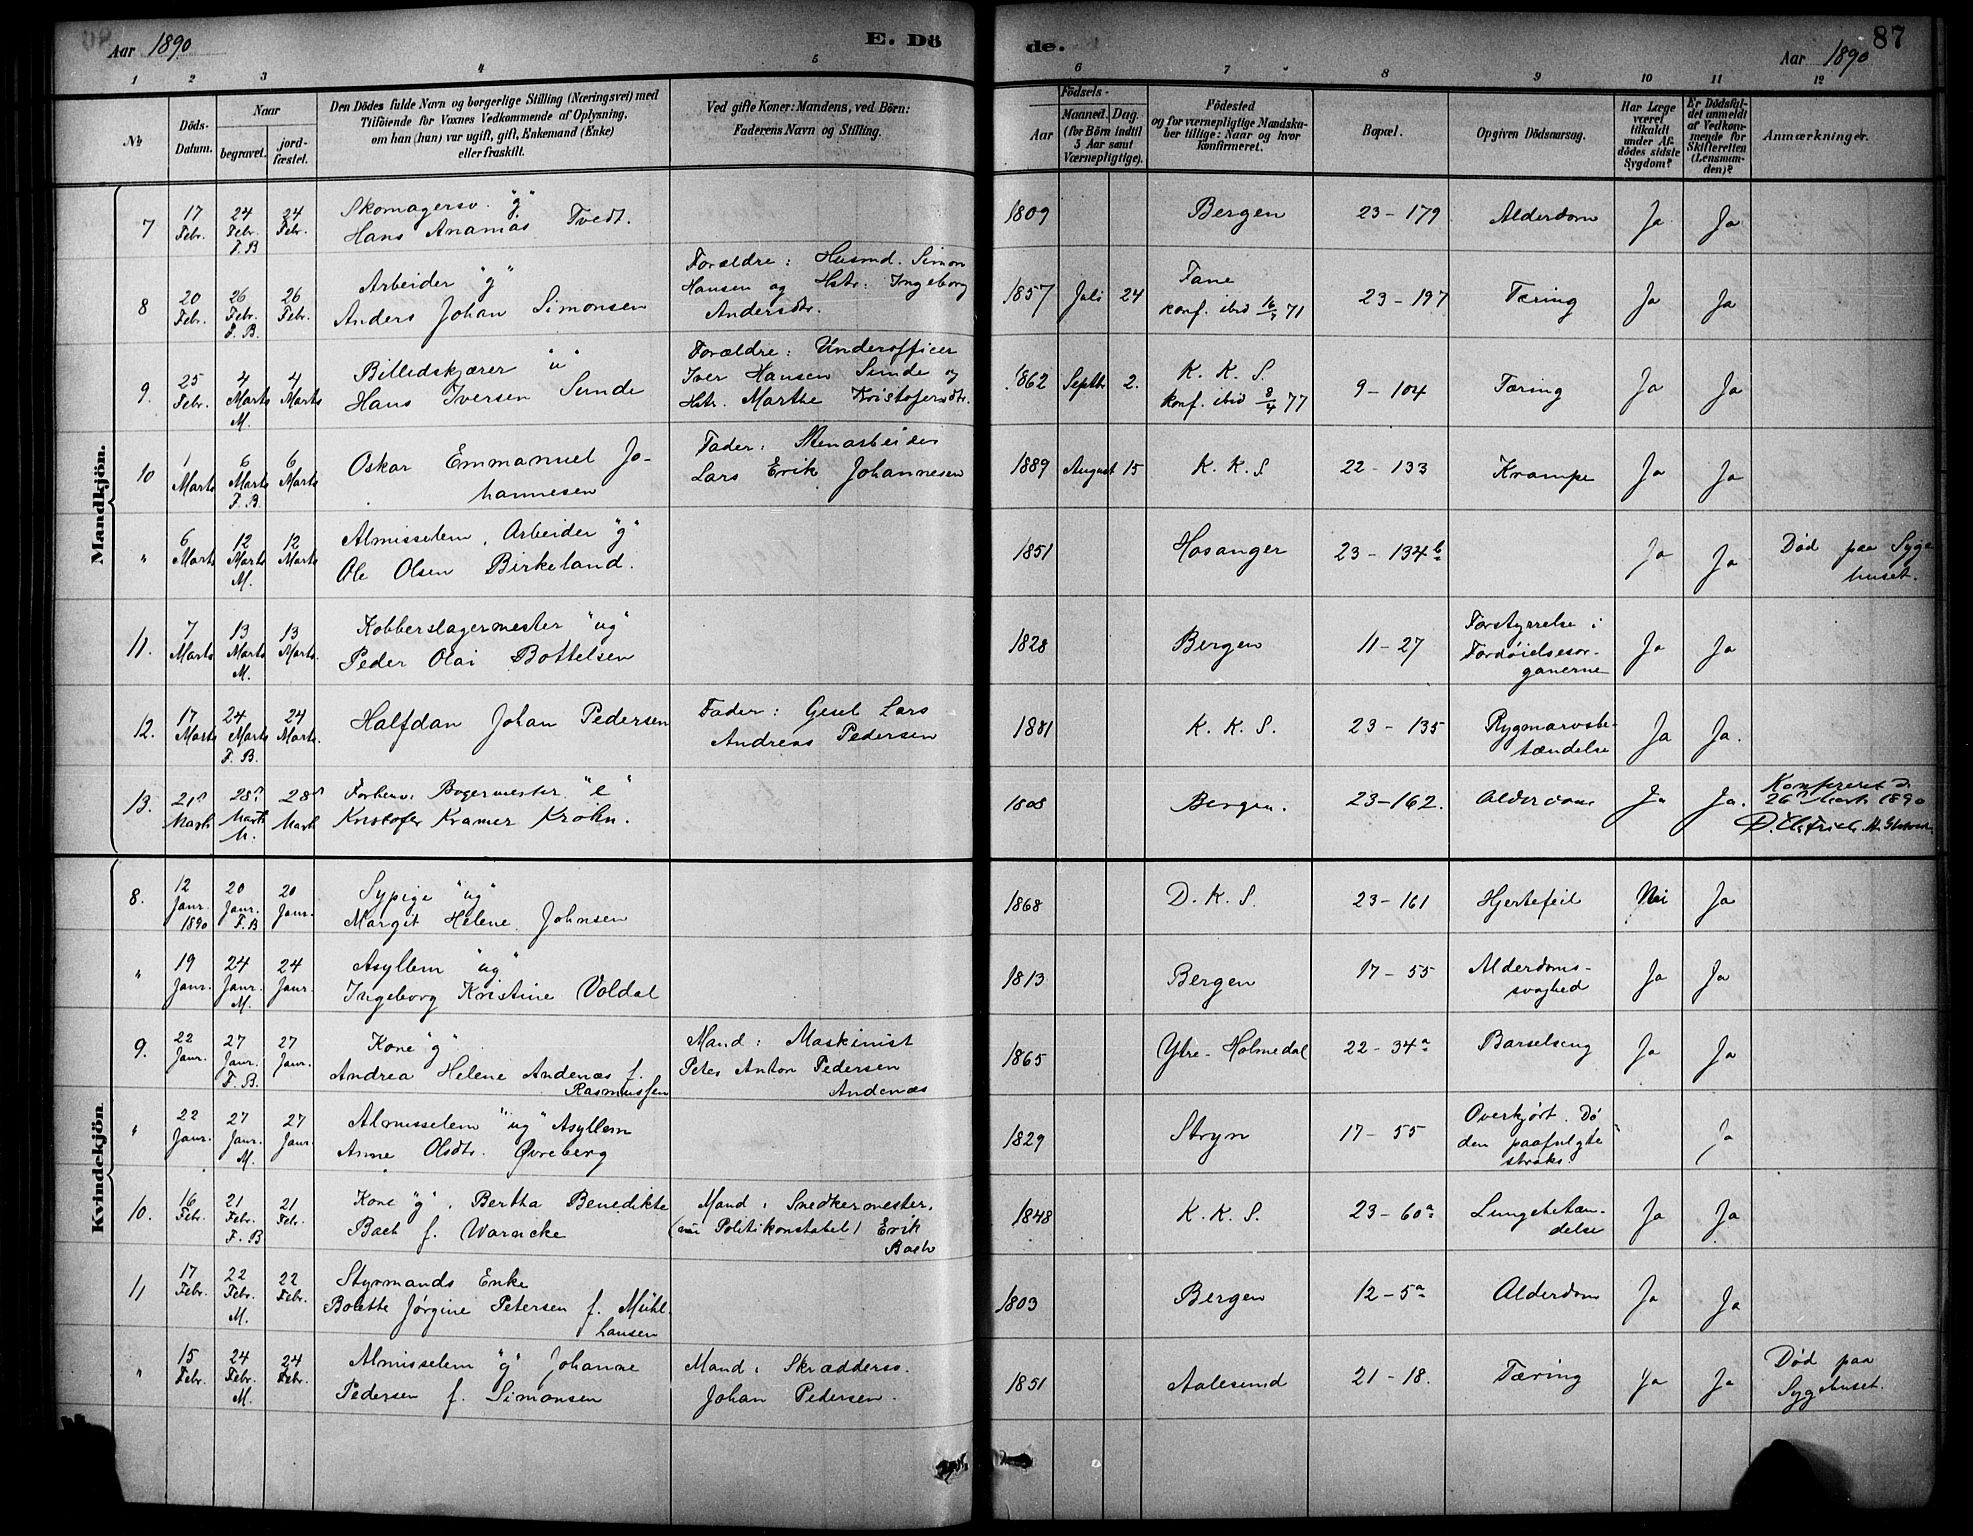 Aar 1890
E. Dö
de.
Aar 1890
87
1 2 3 4 5
6 7 8 9 10 11 12
No
Döds-
Datum.
Naar
begravet.
jord-
fæstet.
Den Dödes fulde Navn og borgerlige Stilling (Næringsvei) med
Tilföiende for Voxnes Vedkommende af Oplysning,
om han (hun) var ugift, gift, Enkemand (Enke)
eller fraskilt.
Ved gifte Koner: Mandens, ved Börn:
Faderens Navn og Stilling.
Födsels-
Aar
Maaned.
Dag.
(for Börn indtil
3 Aar samt
Værnepligtige).
Födested
og for værnepligtige Mandska-
ber tillige: Naar og hvor
Konfirmeret.
Bopæl.
Opgiven Dödsaarsag.
Har Læge
været
tilkaldt
under Af-
dödes sidste
Sygdom?
Er Dödsfal-
det anmeldt
af Vedkom-
mende for
Skifteretten
(Lensman-
den)?
Anmærkninger.
Mandkjön.
7
17
Febr.
24
Febr.
F. B
24
Febr.
Skomagersv. "g"
Hans Ananias Tvedt.
1809
Bergen
23 - 179
Alderdom
Ja
Ja
8
20
Febr.
26
Febr.
F. B.
26
Febr.
Arbeider "g"
Anders Johan Simonsen
Forældre: Husmd. Simon
Hansen og Hstr. Ingeborg
Andersdtr.
1857 Juli 24
Fane
konf. ibid 16/7 71
23 - 197
Tæring
Ja
Ja
9.
25
Febr.
4
Marts
M.
4
Marts
Billedskjærer "u"
Hans Iversen Sunde
Forældre: Underofficer
Iver Hansen Sunde og
Hstr. Marthe Kristofersdtr.
1862 Septbr. 2.
K. K. S.
konf. ibid 8/4 77
9 - 104
Tæring
Ja
Ja
10
1
Marts
6
Marts
F. B.
6
Marts
Oskar Emmanuel Jo-
hannesen
Fader: Stenarbeider
Lars Erik Johannesen
1889 August 15
K. K. S.
22 - 133
Krampe
Ja
Ja
"
6
Marts
12
Marts
M.
12
Marts
Almisselem, Arbeider "g"
Ole Olsen Birkeland.
1851
Hosanger
23 - 134 b
Ja
Ja
Død paa Syge
huset.
11.
7
Marts
13
Marts
M.
13
Marts.
Kobberslagermester "ug"
Peder Olai Bottelsen
1828
Bergen
11 - 27
Forstyrrelse i
Fordöielsesor-
ganerne
Ja
Ja
12.
17
Marts
24
Marts
F. B.
24
Marts.
Halfdan Johan Pedersen
Fader: Gesel Lars
Andreas Pedersen
1881
K. K. S.
23 - 135
Rygmarvsbe-
tændelse
Ja
Ja.
13.
21
Marts
28
Marts
M.
28
Marts
Forhenv. Bøgermester "e"
Kristofer Kramer Krohn.
1808
Bergen.
23 - 162.
Alderdom
Ja
Ja.
Konfereret d.
26 Marts 1890
Kvindekjön
8.
12
Janr.
1890
20
Janr.
F. B
20
Janr.
Sypige "ug"
Margit Helene Johnsen
1868
D. K. S.
23 - 161
Hjertefeil
Nei
Ja
"
19
Janr.
24
Janr.
M.
24
Janr.
Asyllem "ug"
Ingeborg Kristine Voldal
1813
Bergen
17 - 55
Alderdoms-
svaghed
Ja
Ja
9.
22
Janr.
27
Janr.
F. B.
27
Janr.
Kone "g"
Andrea Helene Andenæs f.
Rasmussen
Mand: Maskinist
Peter Anton Pedersen
Andenæs
1865
Ytre-Holmedal
22 - 34 a
Barselseng
Ja
Ja
"
22
Janr.
27
Janr.
M.
27
Janr.
Almisselem "ug" Asyllem
Anne Olsdtr. Øvreberg
1829
Stryn
17 - 55
Overkjört. Dö
den paafulgte
straks.
"
Ja
10.
16
Febr.
21
Febr.
F. B
21
Febr.
Kone "g". Bertha Benedikte
Bach f. Warncke
Mand: Snedkermester.
(nu Politikonstabel) Erik
Bach
1848
K. K. S.
23 - 60 a
Lungebetæn-
delse
Ja
Ja
11
17
Febr.
22
Febr.
M.
22
Febr.
Styrmands Enke
Bolette Jørgine Petersen f. Mühl-
hausen
1803
Bergen
12 - 5 a
Alderdom
Ja
Ja
"
15
Febr.
24
Febr.
M.
24
Febr.
Almisselem "g" Johanne
Pedersen f. Simonsen
Mand: Skrædersv.
Johan Pedersen.
1851
Aalesund
21 - 18.
Tæring
Ja
Ja
Død paa
Sygehuset.